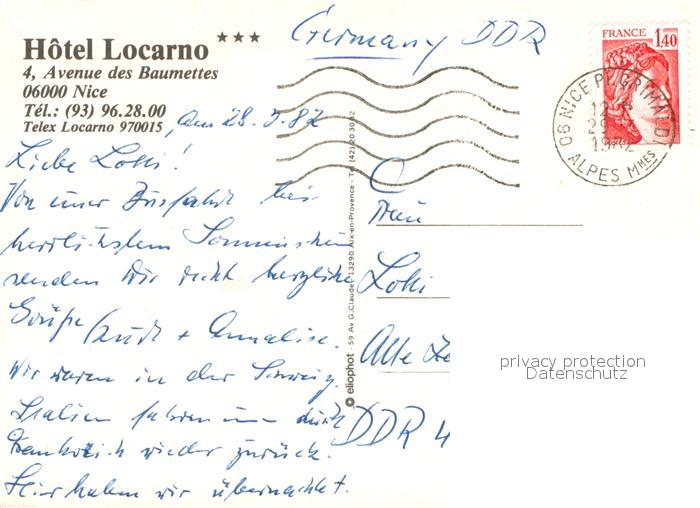 Hôtel Locarno ***
4, Avenue des Baumettes
06000 Nice
Tél.: (93) 96.28.00
Telex Locarno 970015
Germany DDR
FRANCE
1,40
06 NICE PL GRIMALDI
1982
ALPES MMES
am 28.3.82
Liebe Lolli!
Von unser bei
herrlichstem Sonnenschein
senden wir recht herzliche
Grüße Kurt + Annaliese.
Wir waren in der Schweiz,
Italien fahren nun durch
Frankreich wieder zurück.
Hier haben wir übernachtet.
Frau
Lolli
Alte
DDR 4
eliophot - 59 Av G. Claude - 13290 Aix-en-Provence - Tél (42) 20 30 82
privacy protection
Datenschutz